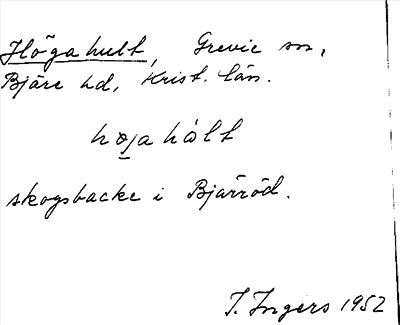 Högahult, Grevie sn,
Bjäre hd, Krist. län.
højahålt
skogsbacke i Bjärröd.
I. Ingers 1952